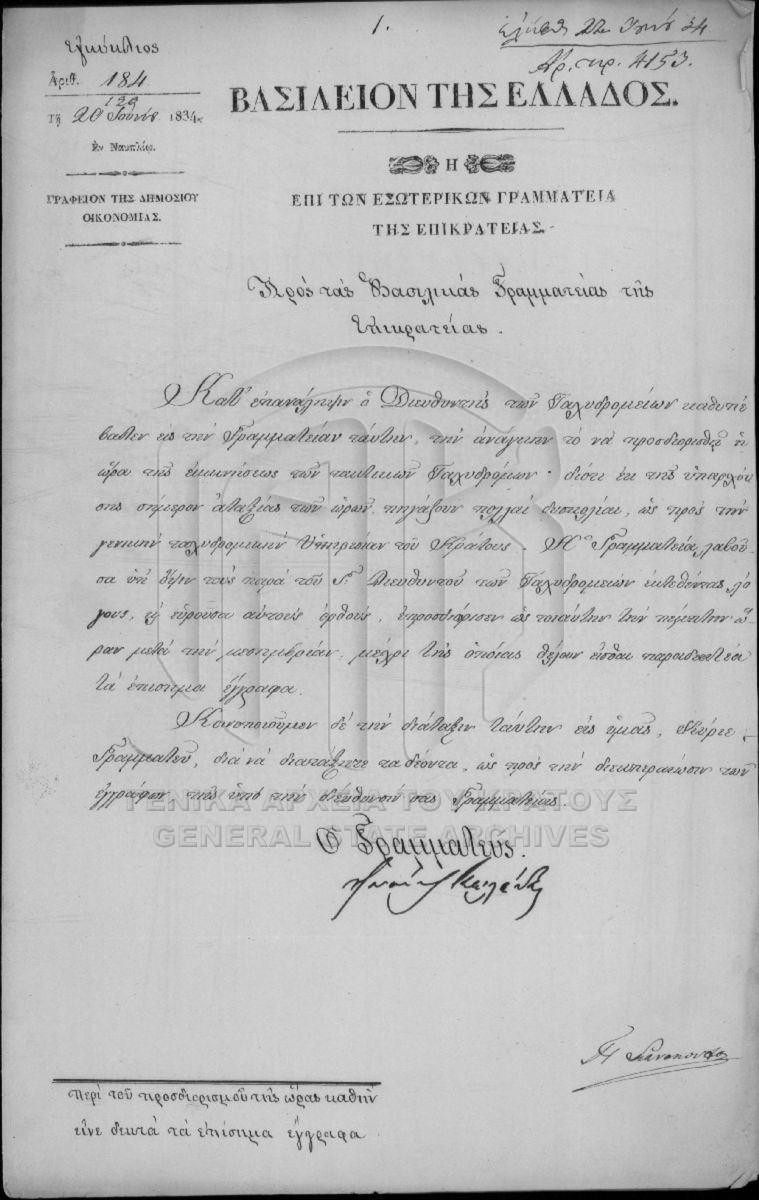 1.
Ἐλήφθη 22 Ἰουν 34
Ἀρ. πρ. 4153.
Ἐγκύκλιος
Ἀριθ. 184
Τῇ 20 Ἰουνίου 1834
Ἐν Ναυπλίῳ.
ΓΡΑΦΕΙΟΝ ΤΗΣ ΔΗΜΟΣΙΟΥ
ΟΙΚΟΝΟΜΙΑΣ.
ΒΑΣΙΛΕΙΟΝ ΤΗΣ ΕΛΛΑΔΟΣ.
Η
ΕΠΙ ΤΩΝ ΕΣΩΤΕΡΙΚΩΝ ΓΡΑΜΜΑΤΕΙΑ
ΤΗΣ ΕΠΙΚΡΑΤΕΙΑΣ.
Πρὸς τὰς Βασιλικὰς Γραμματείας τῆς
Ἐπικρατείας.
Κατ' ἐπανάληψιν ὁ Διευθυντὴς τῶν Ταχυδρομείων καθυπέ
βαλεν εἰς τὴν Γραμματείαν ταύτην, τὴν ἀνάγκην τὸ νὰ προσδιορισθῇ ἡ
ὥρα τῆς ἐκκινήσεως τῶν τακτικῶν Ταχυδρόμων· διότι ἐκ τῆς ὑπαρχού
σης σήμερον ἀταξίας τῶν ὡρῶν, πηγάζουν πολλαὶ δυσκολίαι, ὡς πρὸς τὴν
γενικὴν ταχυδρομικὴν Ὑπηρεσίαν τοῦ Κράτους. Ἡ Γραμματεία, λαβοῦ
σα ὑπ' ὄψιν τοὺς παρὰ τοῦ Κ. Διευθυντοῦ τῶν Ταχυδρομείων ἐκτεθέντας λό
γους, καὶ εὑροῦσα αὐτοὺς ὀρθούς, ἐπροσδιόρισεν ὡς τοιαύτην τὴν πέμπτην ὥ
ραν μετὰ τὴν μεσημβρίαν, μέχρι τῆς ὁποίας θέλουν εἶσθαι παραδεκτέα
τὰ ἐπίσημα ἔγγραφα.
Κοινοποιοῦμεν δὲ τὴν διάταξιν ταύτην εἰς ὑμᾶς, Κύριε
Γραμματεῦ, διὰ νὰ διατάξητε τὰ δέοντα, ὡς πρὸς τὴν διεκπεραίωσιν τῶν
ἐγγράφων τῆς ὑπὸ τὴν διεύθυνσίν σας Γραμματείας.
Ὁ Γραμματεύς.
Ἰωάννης Κωλέττης
Περὶ τοῦ προσδιορισμοῦ τῆς ὥρας καθ' ἣν
εἶνε δεκτὰ τὰ ἐπίσημα ἔγγραφα
ΓΕΝΙΚΑ ΑΡΧΕΙΑ ΤΟΥ ΚΡΑΤΟΥΣ
GENERAL STATE ARCHIVES